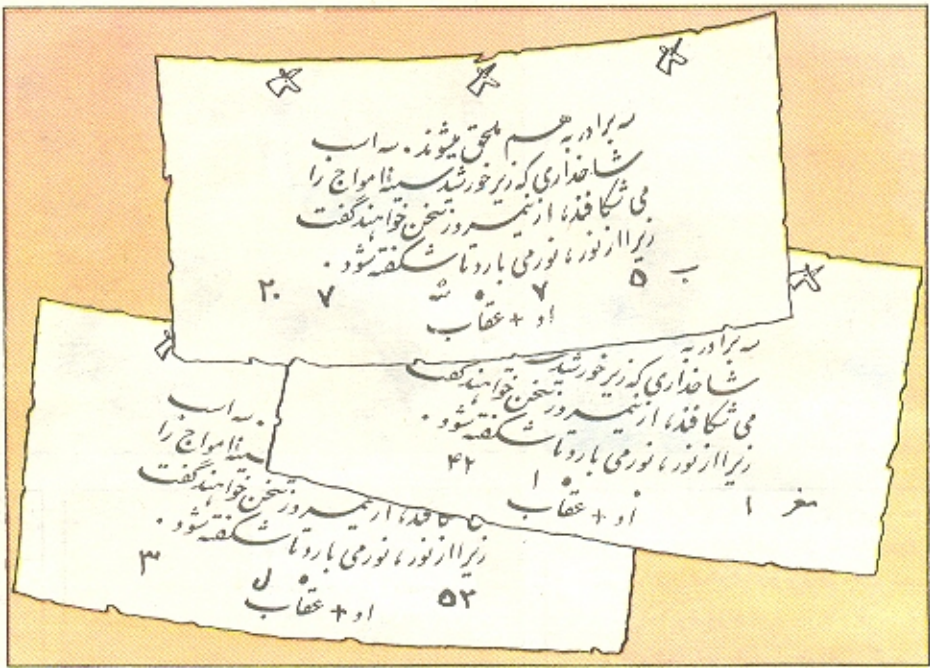 سه برادر به هم ملحق میشوند. سه اسب
شاخداری که زیر خورشید سینهٔ امواج را
می شکافند، از نیمروز سخن خواهند گفت
زیرا از نور، نور می بارد تا شکفته شود.
ب ۵ ۷ ° شه ۷ ۲۰
او + عقاب
سه برادر به
شاخداری که زیر خورشید
می شکافند، از نیمروز سخن خواهند گفت
زیرا از نور، نور می بارد تا شکفته شود.
۴۲
مغر ۱ ° ا
او + عقاب
. سه اسب
سینهٔ امواج را
شکافند، از نیمروز سخن خواهند گفت
زیرا از نور، نور می بارد تا شکفته شود.
۵۲ ° ل ۳
او + عقاب